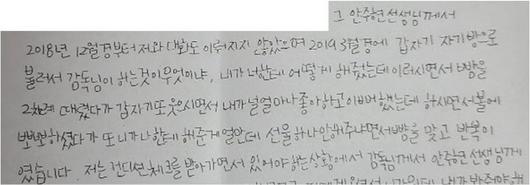 그 안주현선생님께서
2018년 12월경부터 저와 대화도 이루어지지 않았으며 2019 3월경에 갑자기 자기방으로
불러서 감독님이 하는것이 무엇이냐, 내가 너한테 어떻게 해줬는데 이러시면서 뺨을
2차례 때렸다가 갑자기 또 웃으시면서 내가 널 얼마나 좋아하고 이뻐했는데 하시면서 볼에
뽀뽀하셨다가 또 니가 나한테 해준게 얼만데 선물하나 안해주냐면서 뺨을 맞고 반복이
였습니다. 저는 컨디션체크를 받아가면서 있어야 하는 상황에서 감독님께서 안주현 선생님께
내가 봐줘야 해